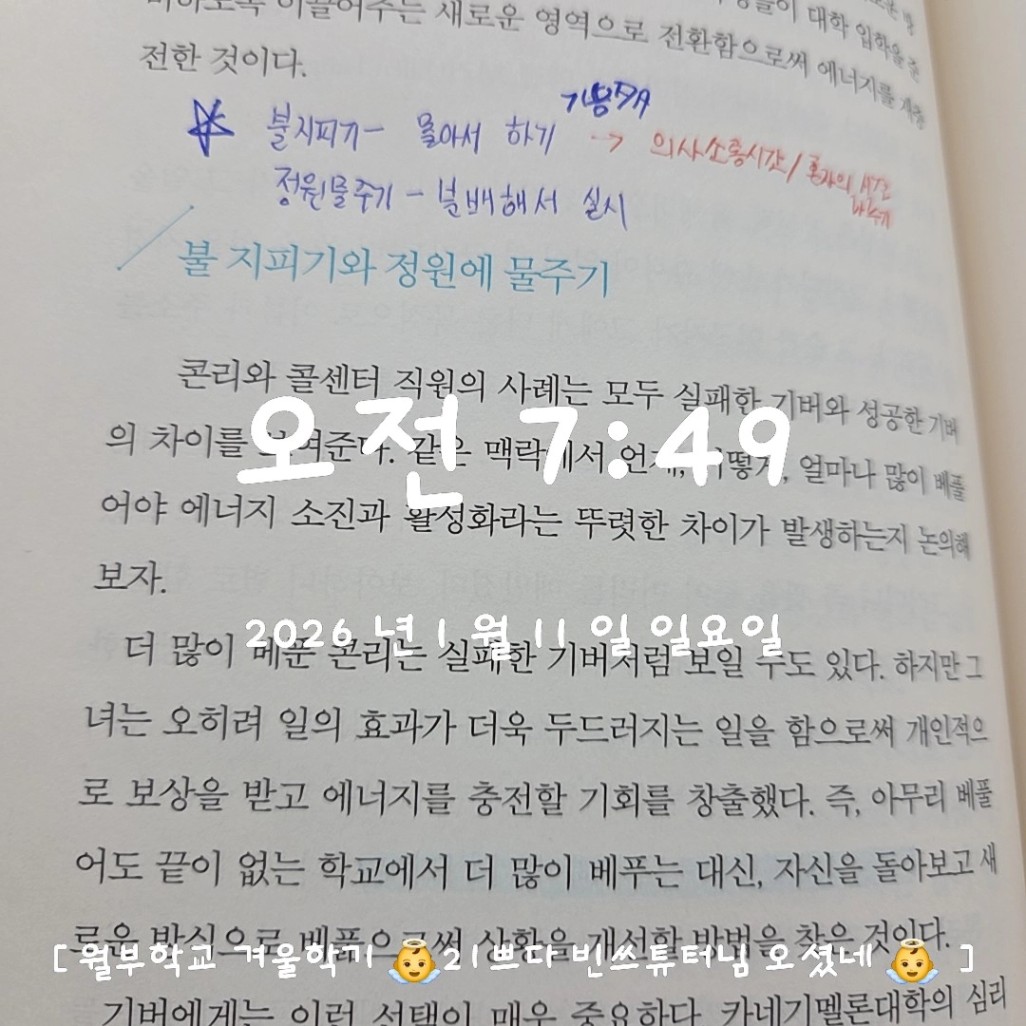 새로운 영역으로 전환함으로써 에너지를
전한 것이다.
기빙
불지피기 - 몰아서 하기 → 의사소통시간/
정원물주기 - 분배해서 실시
불 지피기와 정원에 물주기
콘리와 콜센터 직원의 사례는 모두 실패한 기버와 성공한 기버
의 차이를 보여준다. 같은 맥락에서 언제, 어떻게, 얼마나 많이 베풀
오전 7:49
어야 에너지 소진과 활성화라는 뚜렷한 차이가 발생하는지 논의해
보자.
2026년 1월 11일 일요일
더 많이 베푼 콘리는 실패한 기버처럼 보일 수도 있다. 하지만 그
녀는 오히려 일의 효과가 더욱 두드러지는 일을 함으로써 개인적으
로 보상을 받고 에너지를 충전할 기회를 창출했다. 즉, 아무리 베풀
어도 끝이 없는 학교에서 더 많이 베푸는 대신, 자신을 돌아보고 새
로운 방식으로 베풂으로써 상황을 개선할 방법을 찾은 것이다.
[ 월부학교 겨울학기 👼21쁘다 빈쓰튜터님 오셨네👼 ]
기버에게는 이런 선택이 매우 중요하다. 카네기멜론대학의 심리